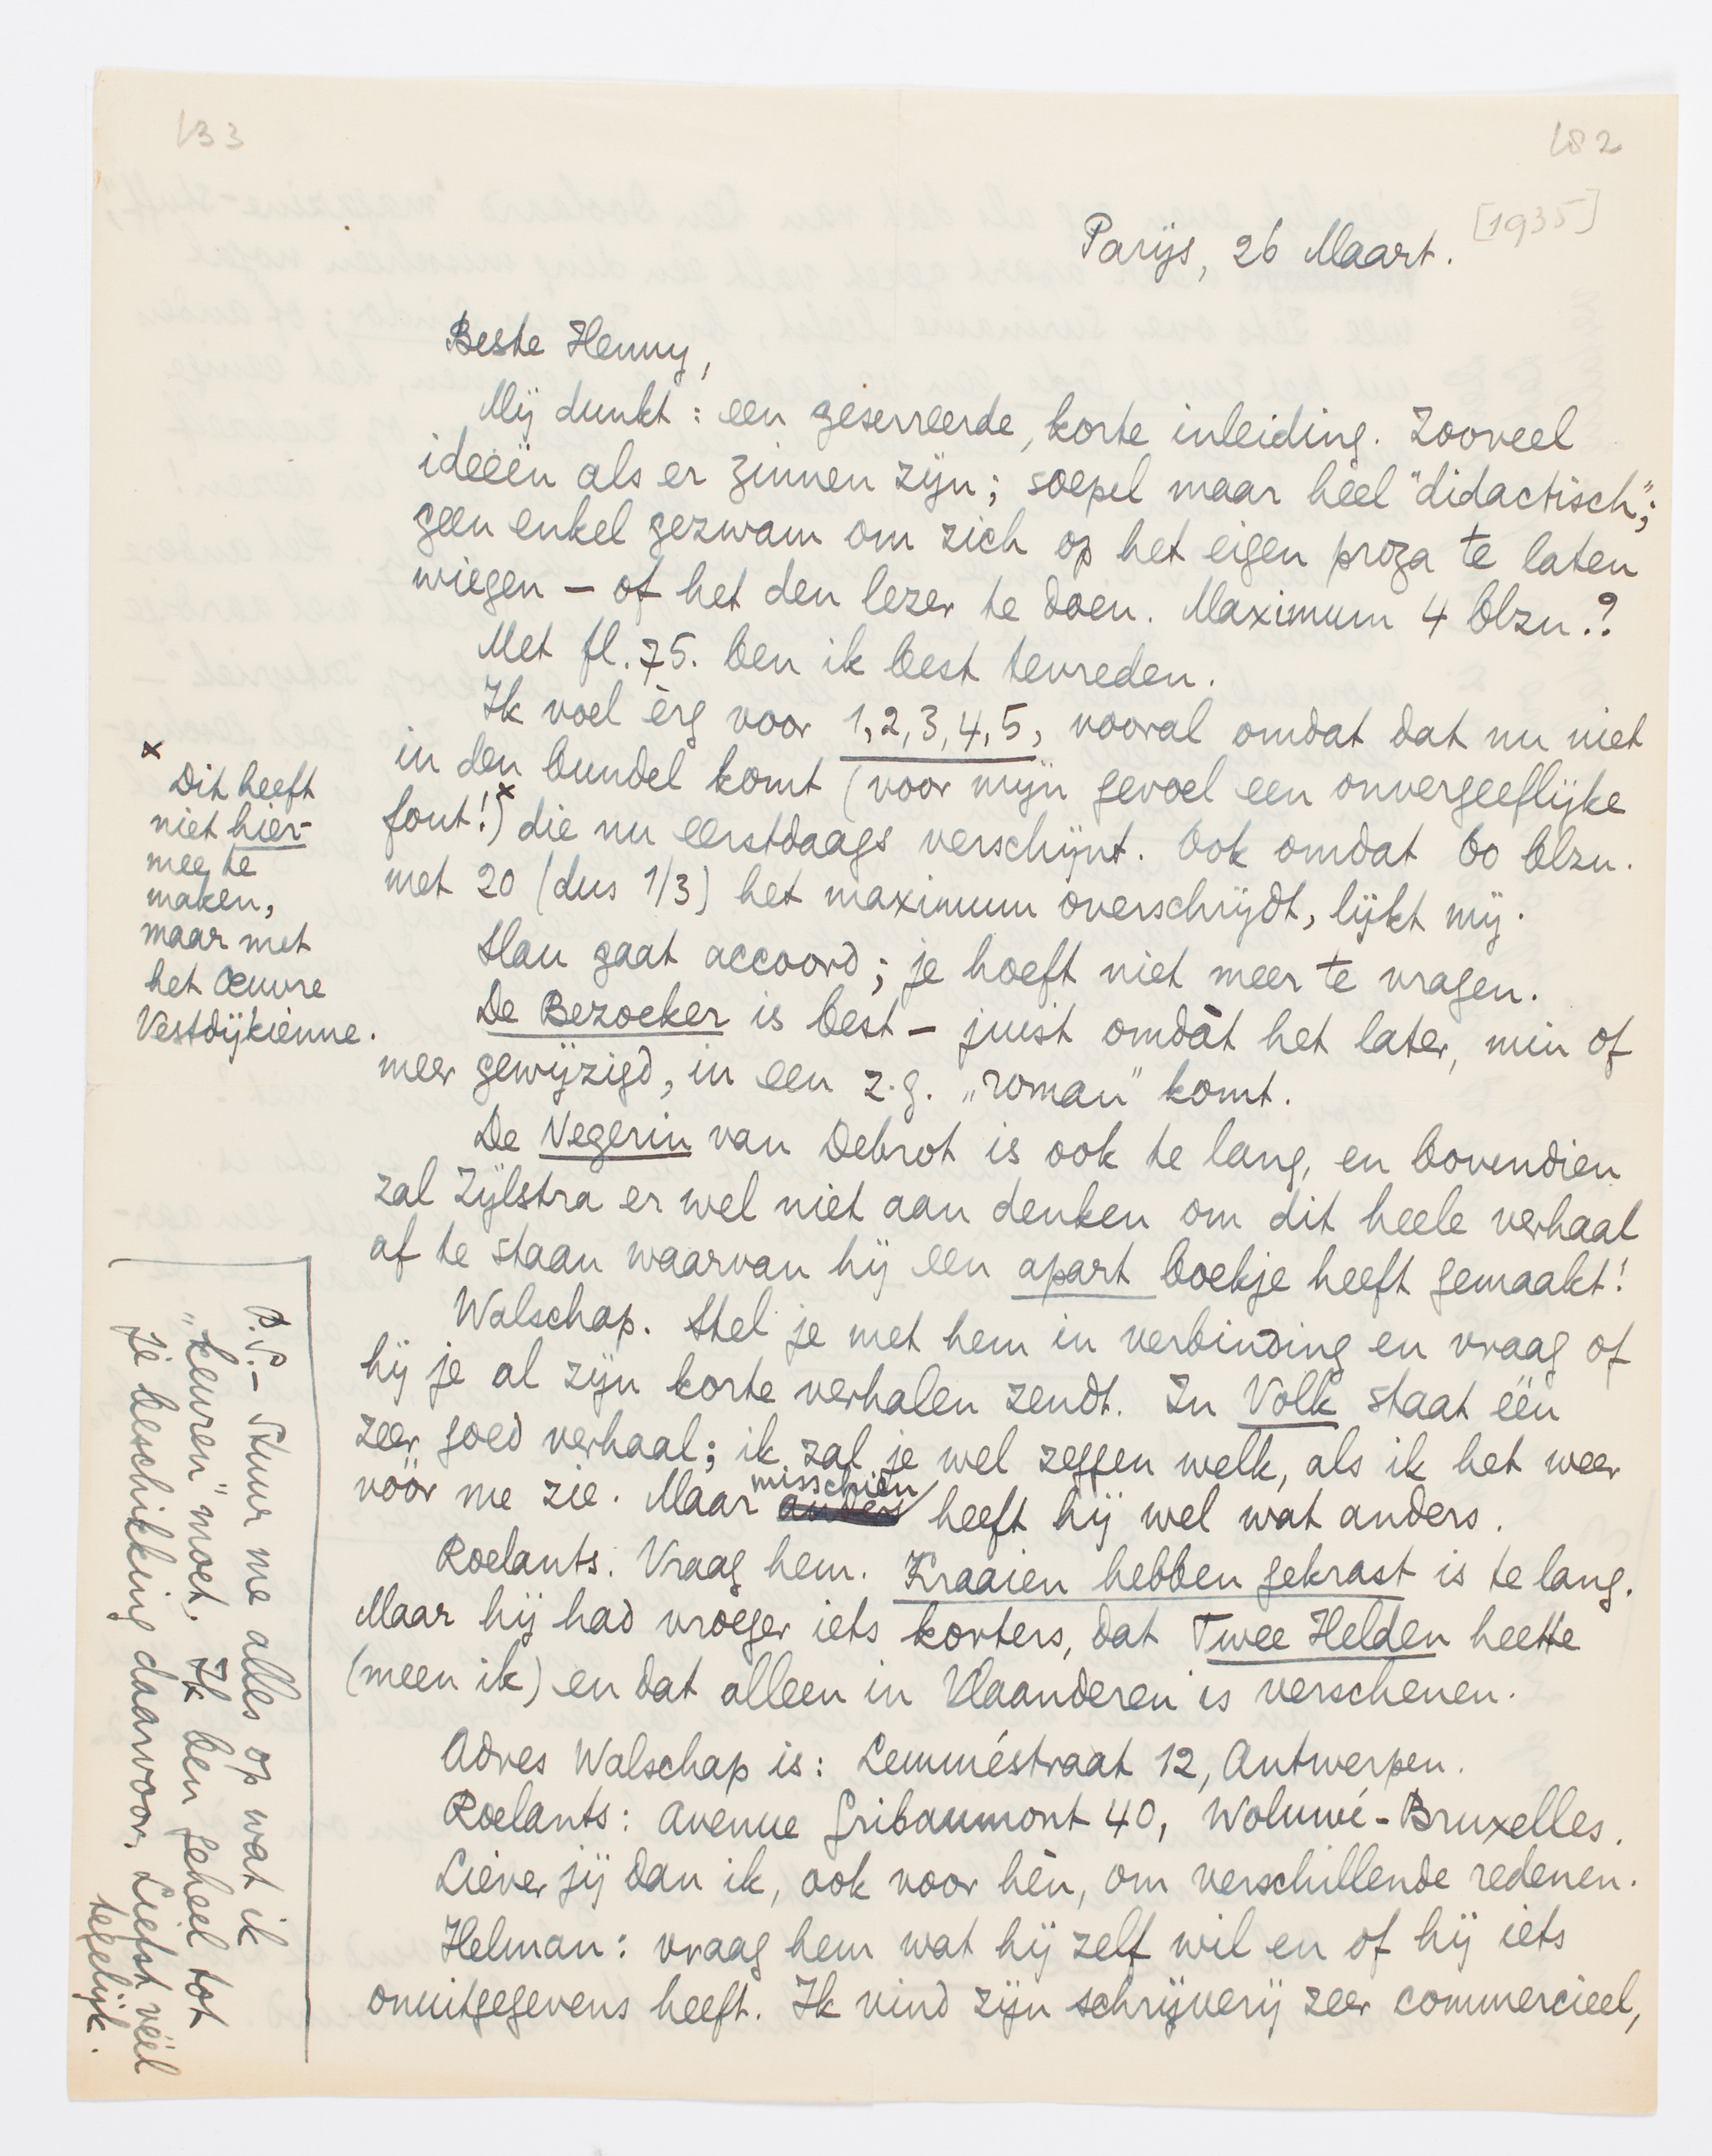 133
182
Parijs, 26 Maart.
[1935]
Beste Henny,
Mij dunkt: een geserreerde, korte inleiding. Zooveel
ideeën als er zinnen zijn; soepel maar héél "didactisch";
geen enkel gezwam om zich op het eigen proza te laten
wiegen – of het den lezer te doen. Maximum 4 blzn.?
Met fl. 75. ben ik best tevreden.
Ik voel èrg voor 1, 2, 3, 4, 5, vooral omdat dat nu niet
in den bundel komt (voor mijn gevoel een onvergeeflijke
fout!)x die nu eerstdaags verschijnt. Ook omdat 60 blzn.
met 20 (dus 1/3) het maximum overschrijdt, lijkt mij.
Slau gaat accoord; je hoeft niet meer te vragen.
De Bezoeker is best – juist omdàt het later, min of
meer gewijzigd, in een z.g. „roman" komt.
De Negerin van Debrot is ook te lang, en bovendien
zal Zijlstra er wel niet aan denken om dit heele verhaal
af te staan waarvan hij een apart boekje heeft gemaakt!
Walschap. Stel je met hem in verbinding en vraag of
hij je al zijn korte verhalen zendt. In Volk staat één
zeer goed verhaal; ik zal je wel zeggen welk, als ik het weer
vóór me zie. Maar anders misschien heeft hij wel wat anders.
Roelants. Vraag hem. Kraaien hebben gekrast is te lang.
Maar hij had vroeger iets korters, dat Twee Helden heette
(meen ik) en dat alleen in Vlaanderen is verschenen.
Adres Walschap is: Lemméstraat 12, Antwerpen.
Roelants: Avenue Gribaumont 40, Woluwé-Bruxelles.
Liever jij dan ik, ook voor hèn, om verschillende redenen.
Helman: vraag hem wat hij zelf wil en of hij iets
onuitgegevens heeft. Ik vind zijn schrijverij zeer commercieel,
x
Dit heeft
niet hier-
mee te
maken,
maar met
het Œuvre
Vestdijkienne.
P.S. – Stuur me alles op wat ik
„keuren" moet. Ik ben geheel tot
je beschikking daarvoor. Liefst véél
tegelijk.